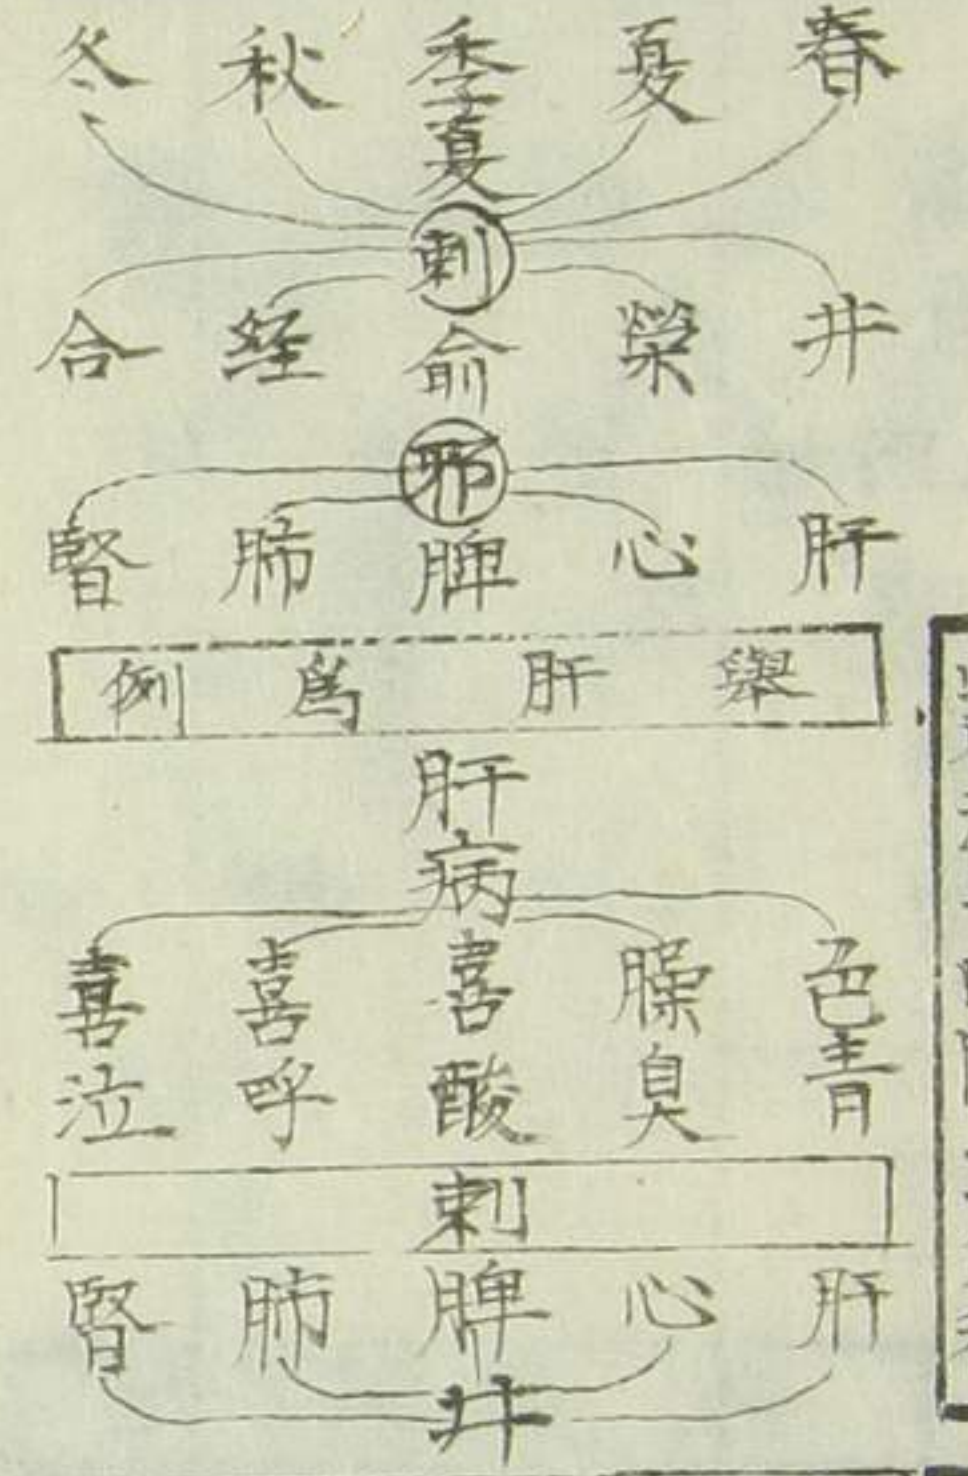 春 夏 季夏 秋 冬
刺
井 榮 俞 経 合
邪
肝 心 脾 肺 腎
舉 肝 爲 例
肝病
色青 臊臭 喜酸 喜呼 喜泣
刺
肝 心 脾 肺 腎
井